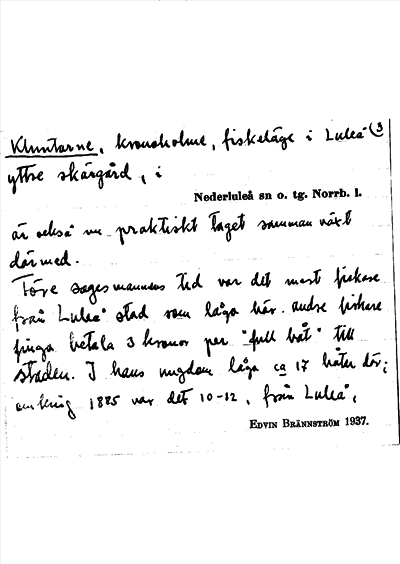 Kluntarne, kronoholme, fiskeläge i Luleå (3
yttre skärgård, i
Nederluleå sn o. tg. Norrb. l.
är också nu praktiskt taget samman växt
därmed.
Före sagesmannens tid var det mest fiskare
från Luleå stad som låga här. andre fiskare
finga betala 3 kronor per "full båt" till
staden. I hans ungdom låga ca 17 båtar där;
omkring 1885 var det 10-12, från Luleå,
EDVIN BRÄNNSTRÖM 1937.